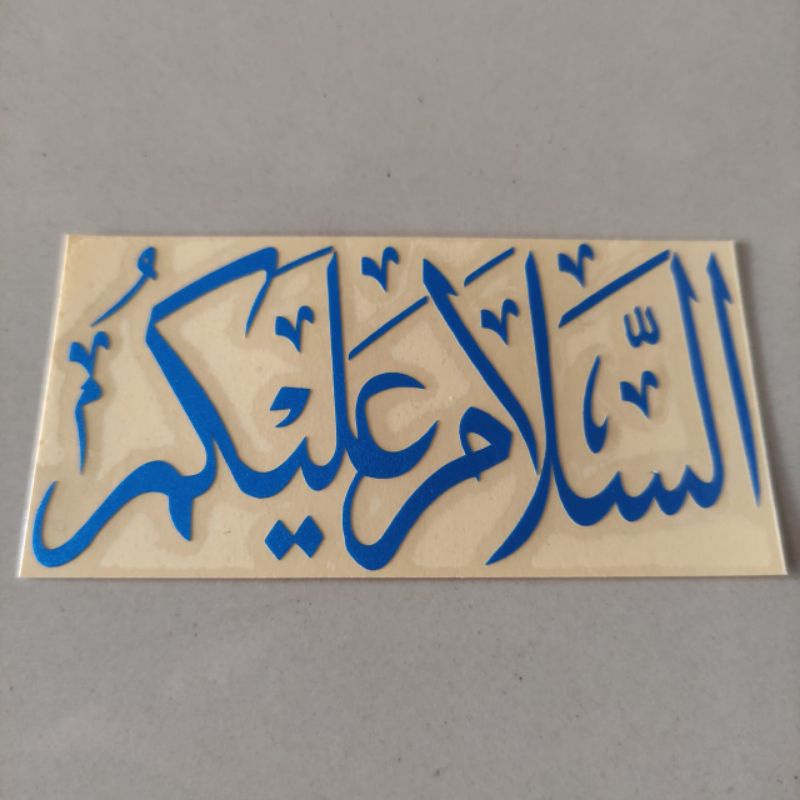 السَّلامُ عَلَيْكُمْ